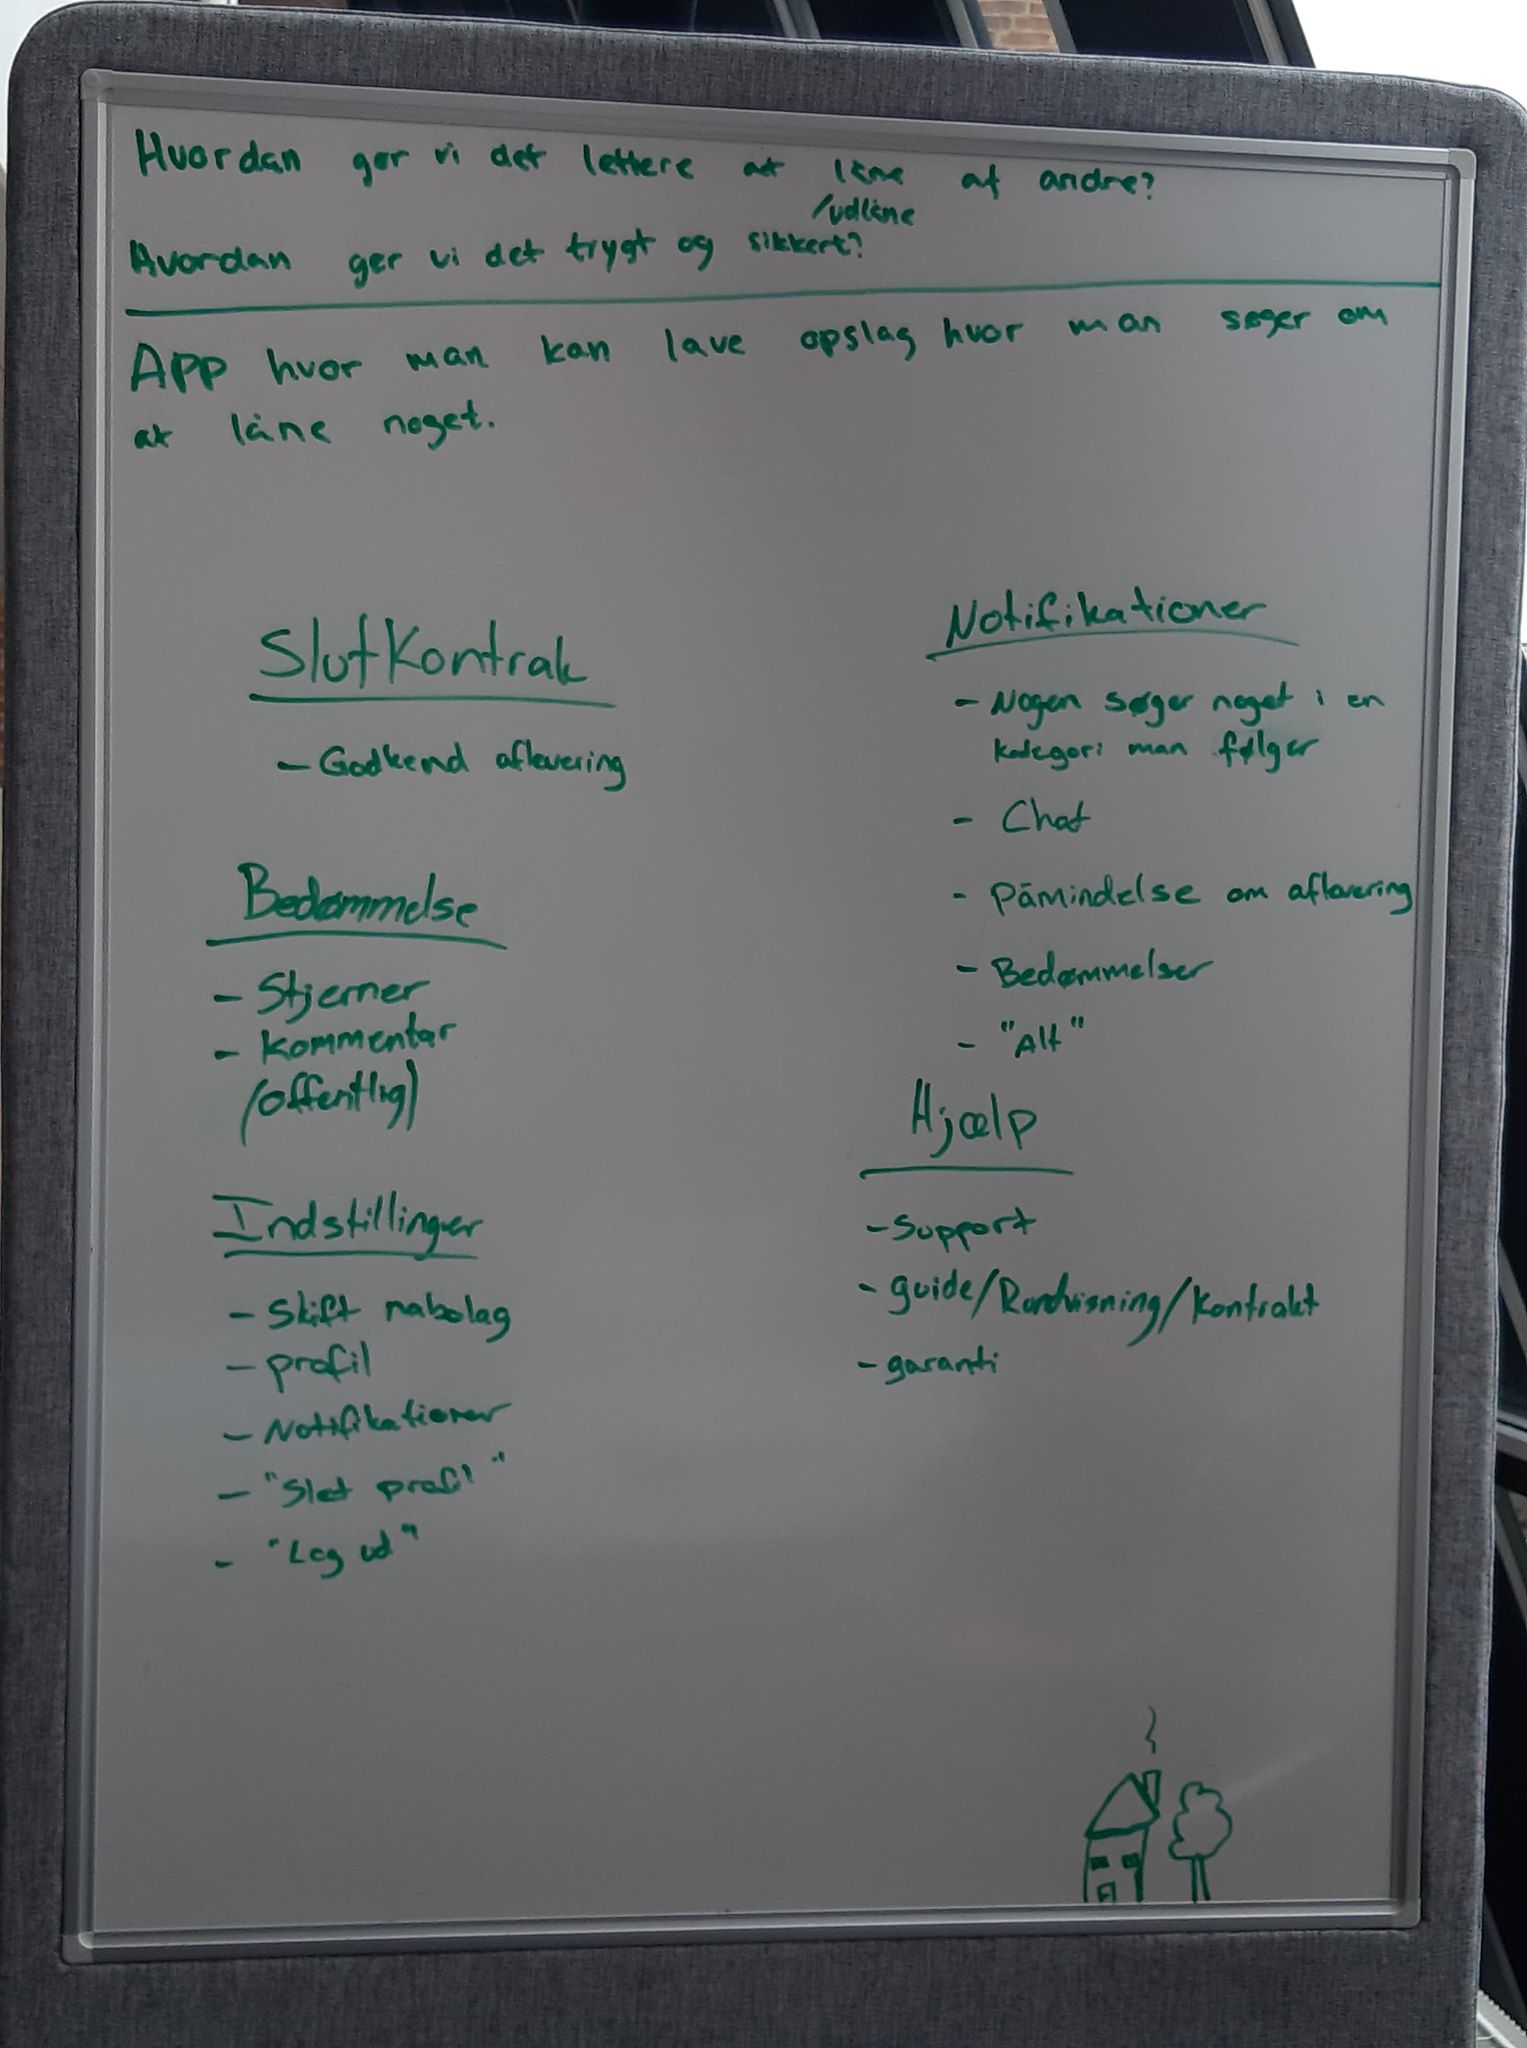 Hvordan gør vi det lettere at låne af andre?
/udlåne
Hvordan gør vi det trygt og sikkert?
APP hvor man kan lave opslag hvor man søger om
at låne noget.
SlutKontrak
- Godkend aflevering
Bedømmelse
- Stjerner
- Kommentar
(offentlig)
Indstillinger
- Skift nabolag
- profil
- Notifikationer
- "Slet profil"
- "Log ud"
Notifikationer
- Nogen søger noget i en
kategori man følger
- Chat
- Påmindelse om aflevering
- Bedømmelser
- "Alt"
Hjælp
- Support
- guide/Rundvisning/Kontrakt
- garanti